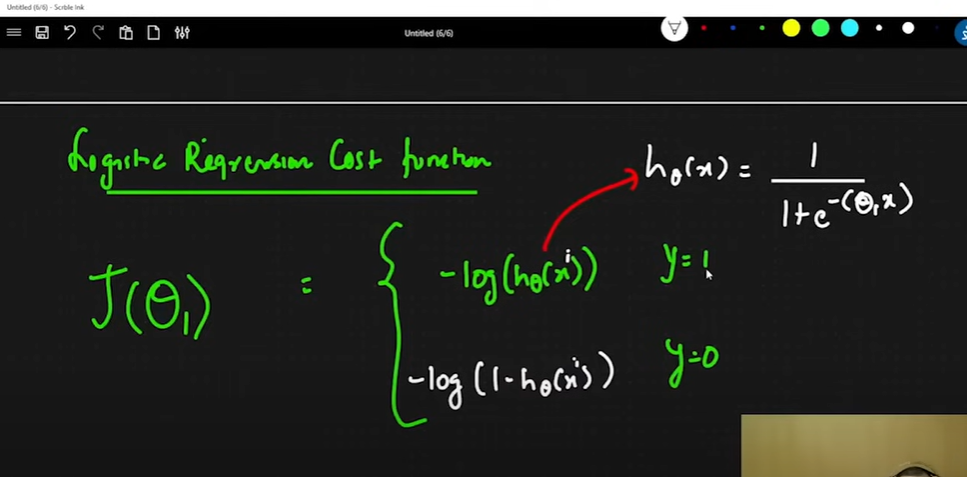 Untitled (6/6) - Scrble Ink
Untitled (6/6)
Logistic Regression Cost function
hθ(x) = 1 / (1 + e^-(θ₁x))
J(θ₁) = {
-log(hθ(xⁱ)) y = 1
-log(1 - hθ(xⁱ)) y = 0